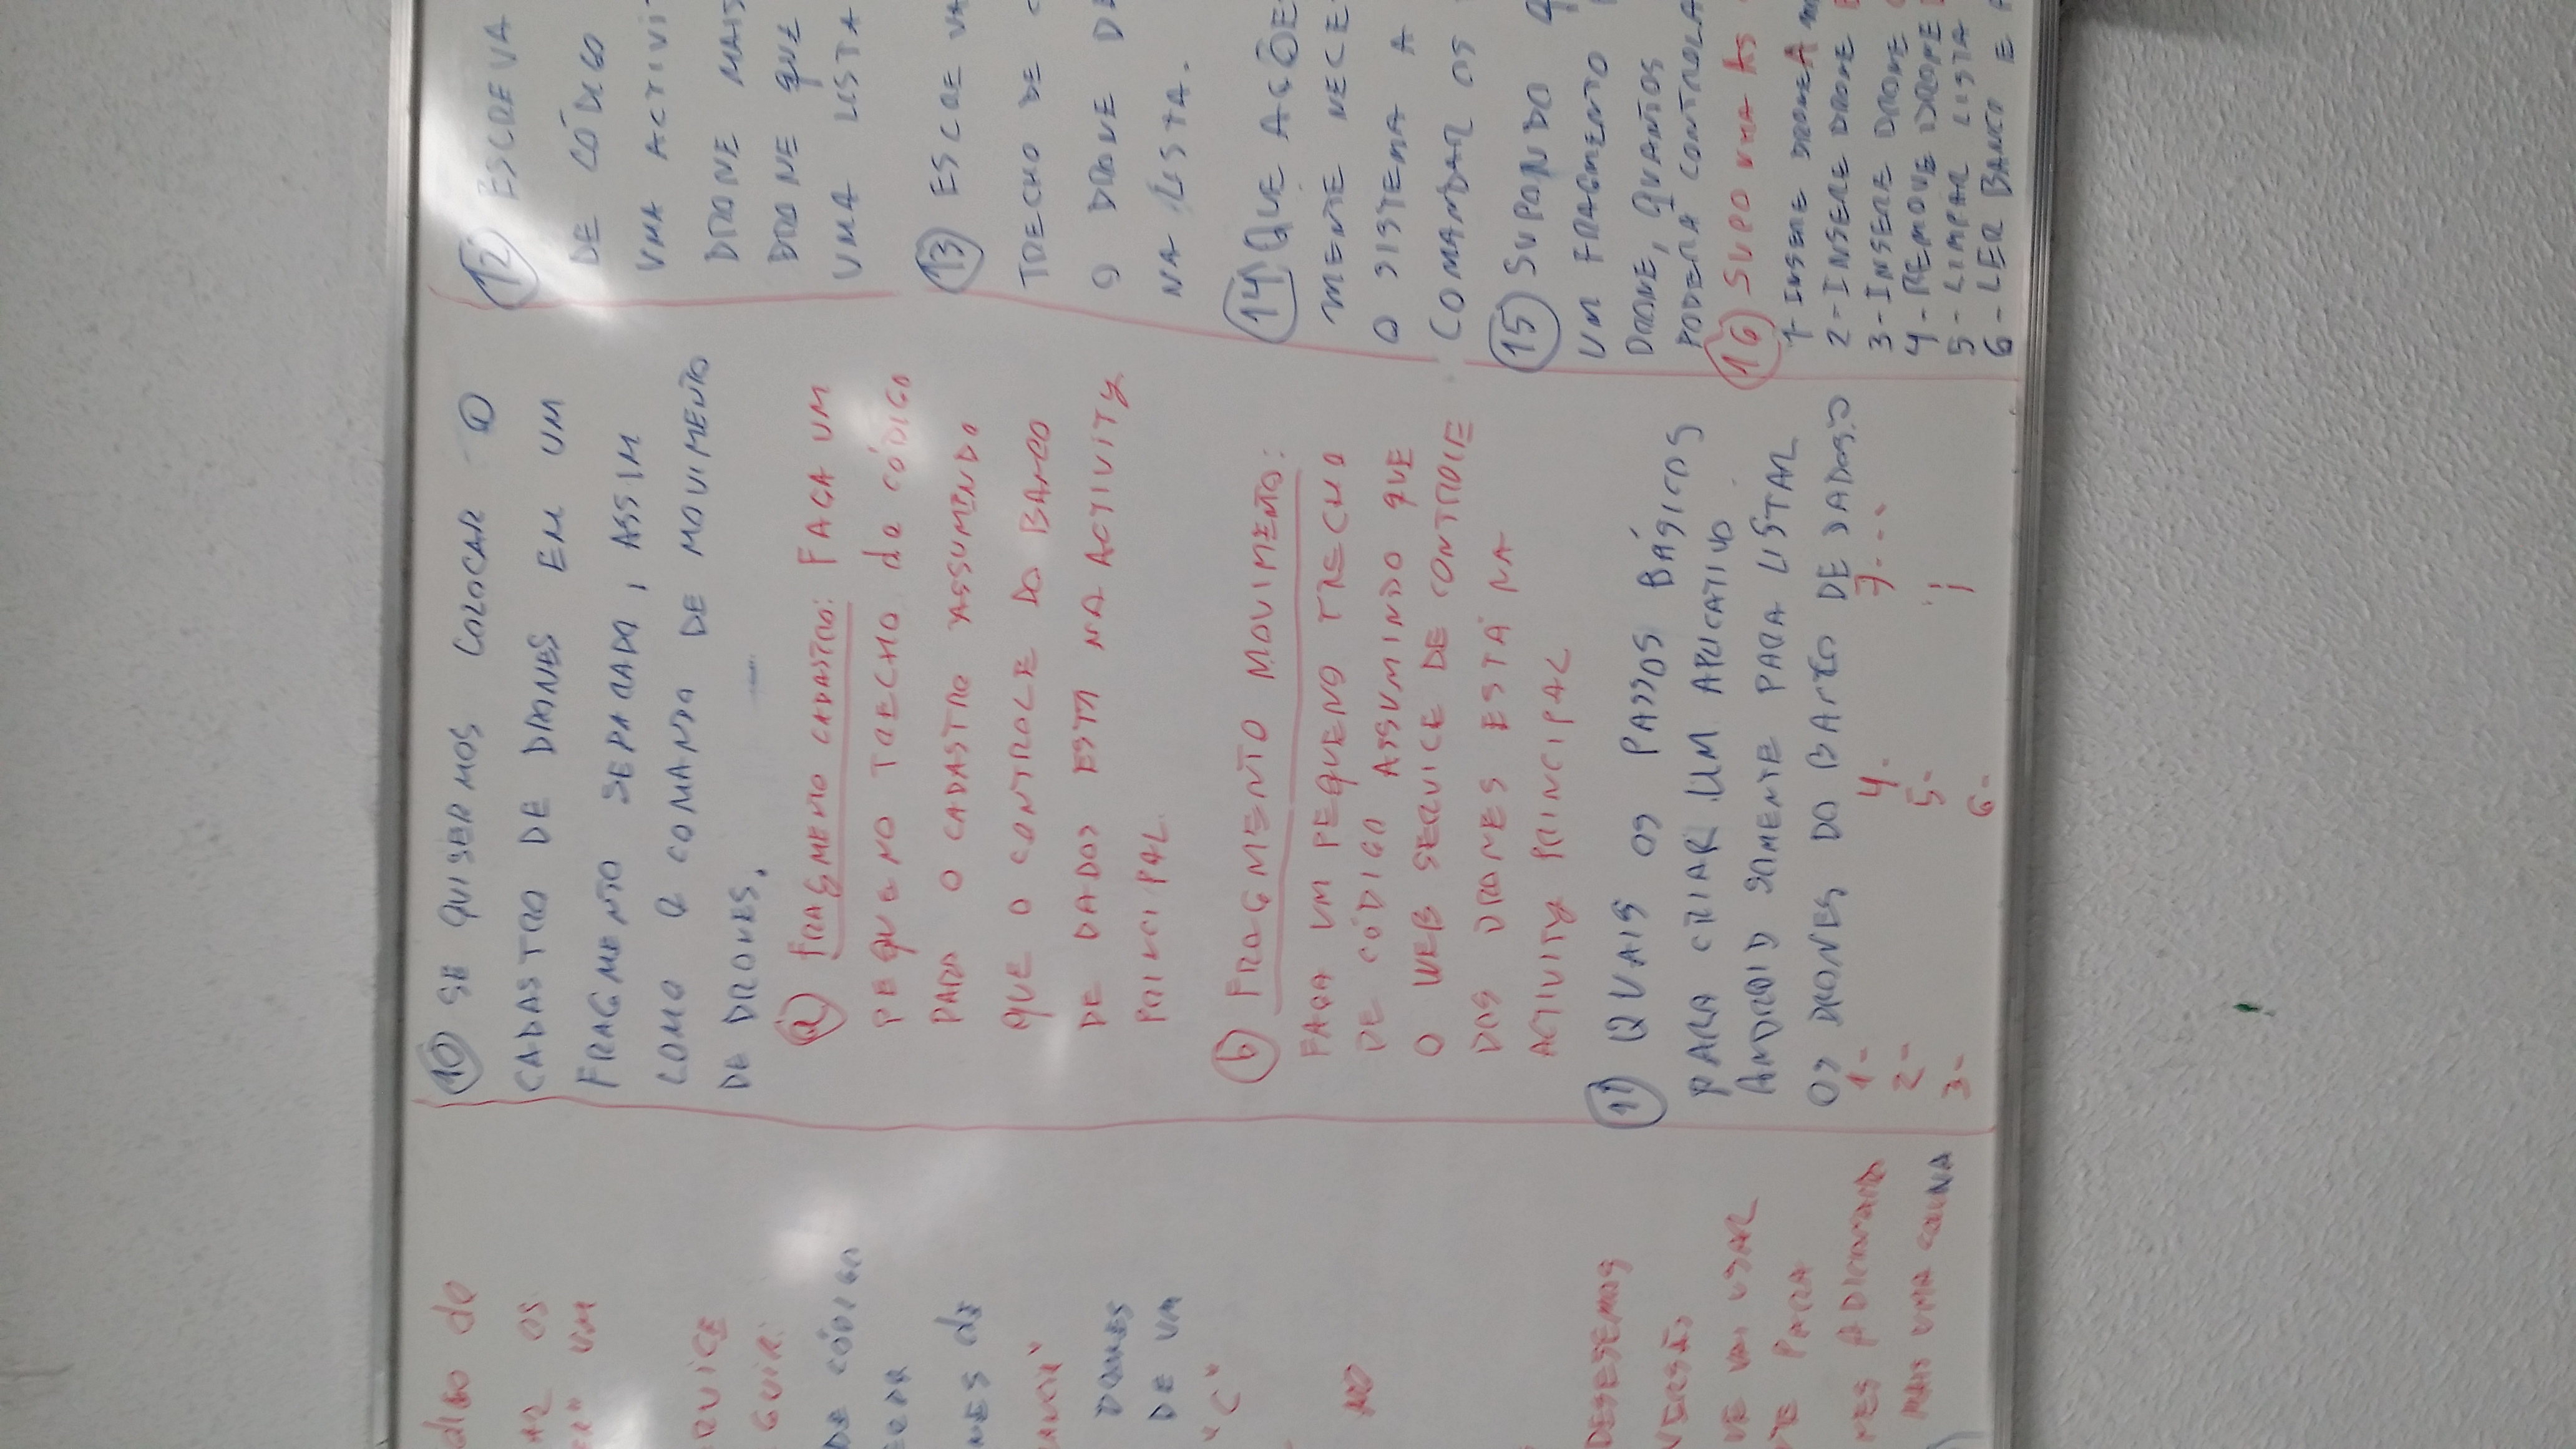 DE
AR OS
UM
GUIR:
DE CÓDIGO
"C"
DRONES
DE UM
NO
DESESEMOS
VERSÃO
VAI USAR
PARA
MAIS UMA COLUNA
10 SE QUISERMOS COLOCAR O
CADASTRO DE DRONES EM UM
FRAGMENTO SEPARADO, ASSIM
COMO O COMANDO DE MOVIMENTO
DE DRONES.
a FRAGMENTO CADASTRO: FAÇA UM
PEQUENO TRECHO de CÓDIGO
PARA O CADASTRO ASSUMINDO
QUE O CONTROLE DO BANCO
DE DADOS ESTÁ NA ACTIVITY
PRINCIPAL.
b FRAGMENTO MOVIMENTO:
FAÇA UM PEQUENO TRECHO
DE CÓDIGO ASSUMINDO QUE
O WEB SERVICE DE CONTROLE
DOS DRONES ESTÁ NA
ACTIVITY PRINCIPAL
11 QUAIS OS PASSOS BÁSICOS
PARA CRIAR UM APLICATIVO
ANDROID SOMENTE PARA LISTAR
OS DRONES DO BANCO DE DADOS?
1- 4- 7- ...
2- 5-
3- 6-
12 ESCREVA
DE CÓDIGO
UMA ACTIVI
DRONE MAIS
DRONE QUE
UMA LISTA
13 ESCREVA
TRECHO DE
O DRONE DE
NA LISTA.
14 QUE AÇÕE
MENTE NECE
O SISTEMA A
COMANDAR OS
15 SUPONDO Q
UM FRAGMENTO
DRONE, QUANTOS
PODERÁ CONTROLA
16 SUPONHA AS
1- INSERE DRONE A
2- INSERE DRONE
3- INSERE DRONE
4- REMOVE DRONE
5- LIMPAR LISTA
6- LER BANCO E